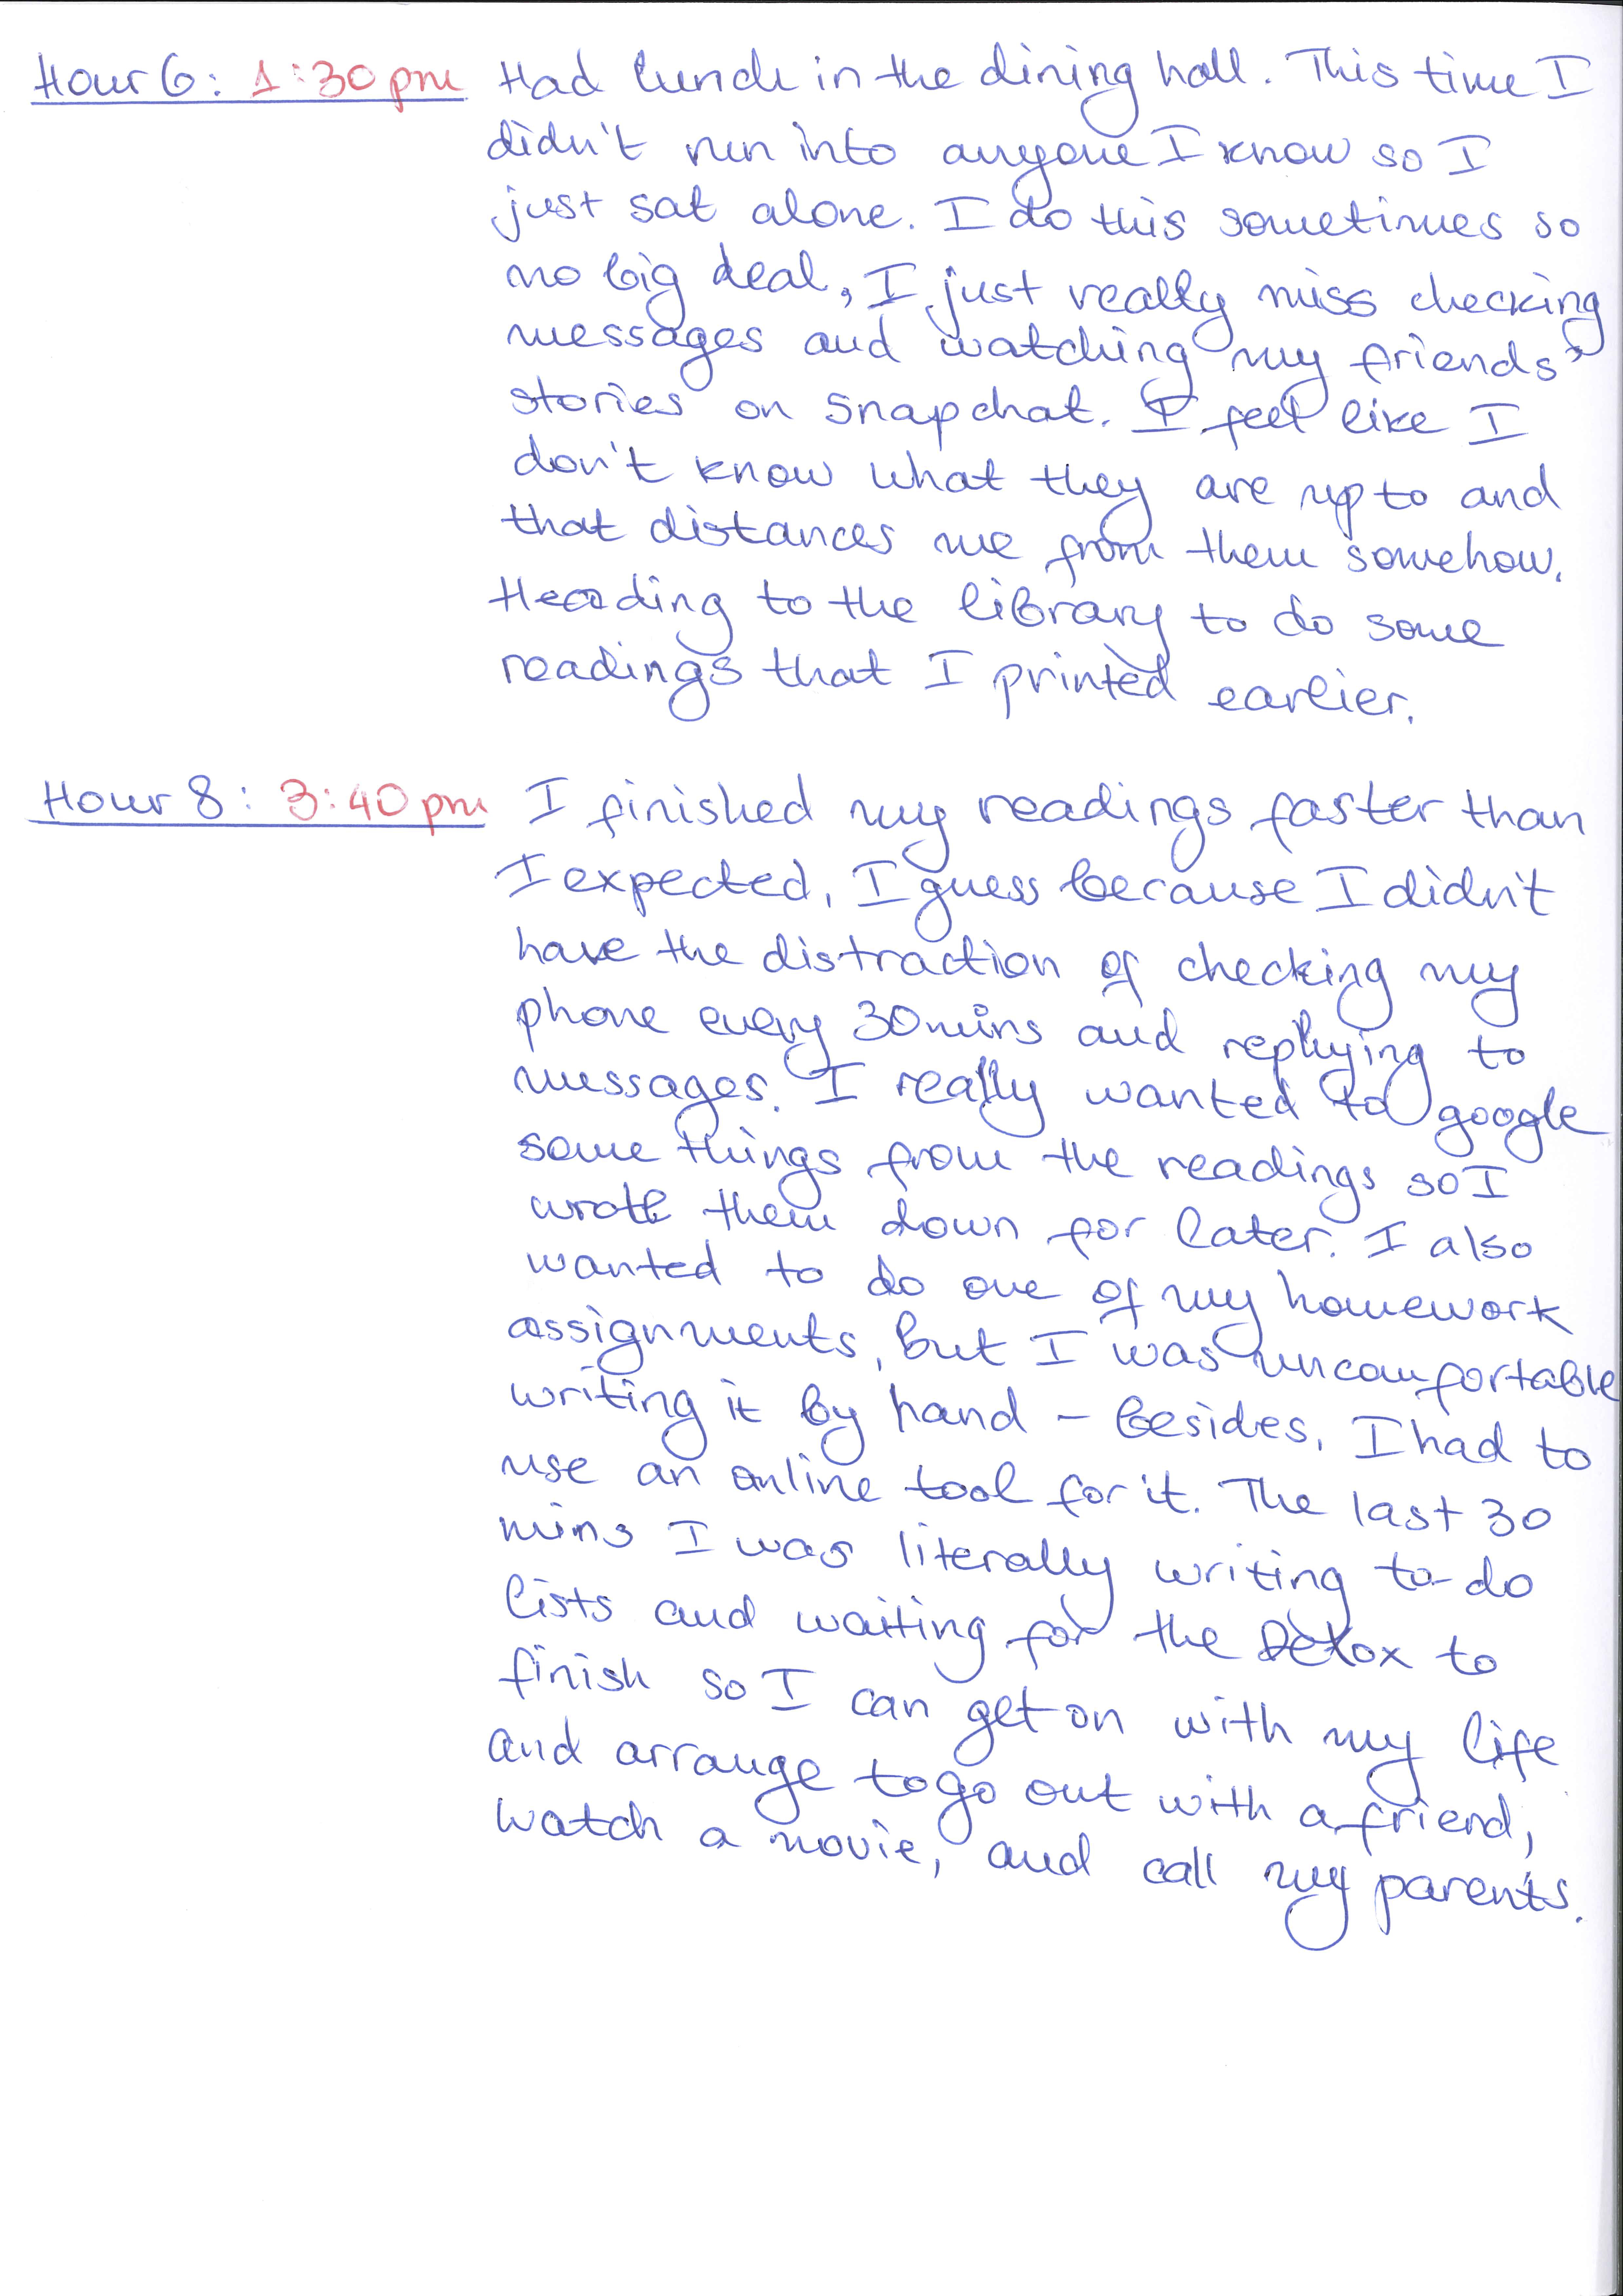 Hour 6: 1:30 pm Had lunch in the dining hall. This time I
didn't run into anyone I know so I
just sat alone. I do this sometimes so
no big deal, I just really miss checking
messages and watching my friends'
stories on snapchat. I feel like I
don't know what they are up to and
that distances me from them somehow.
Heading to the library to do some
readings that I printed earlier.
Hour 8: 3:40 pm I finished my readings faster than
I expected, I guess because I didn't
have the distraction of checking my
phone every 30 mins and replying to
messages. I really wanted to google
some things from the readings so I
wrote them down for later. I also
wanted to do one of my homework
assignments, but I was uncomfortable
writing it by hand - besides, I had to
use an online tool for it. The last 30
mins I was literally writing to-do
lists and waiting for the Detox to
finish so I can get on with my life
and arrange to go out with a friend,
watch a movie, and call my parents.